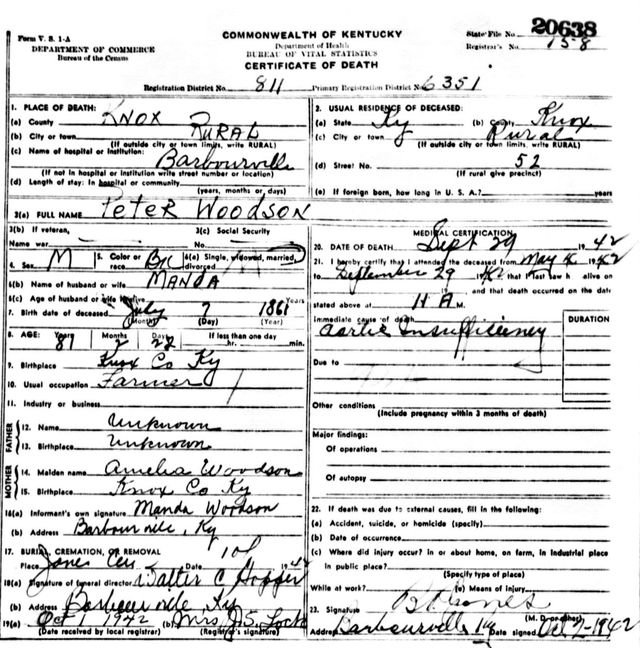 Form V. S. 1-A
DEPARTMENT OF COMMERCE
Bureau of the Census
COMMONWEALTH OF KENTUCKY
Department of Health
BUREAU OF VITAL STATISTICS
CERTIFICATE OF DEATH
State File No. 20638
Registrar's No. 158
Registration District No. 811 Primary Registration District No. 6351
1. PLACE OF DEATH:
(a) County KNOX
(b) City or town RURAL
(If outside city or town limits, write RURAL)
(c) Name of hospital or institution:
Barbourville
(If not in hospital or institution write street number or location)
(d) Length of stay: In hospital or community
(years, months or days)
2. USUAL RESIDENCE OF DECEASED:
(a) State Ky (b) County Knox
(c) City or town Rural
(If outside city or town limits, write RURAL)
(d) Street No. 52
(If rural give precinct)
(e) If foreign born, how long in U. S. A.? years
3(a) FULL NAME PETER WOODSON
3(b) If veteran, 3(c) Social Security
Name war No.
4. Sex M 5. Color or race 6(a) Single, widowed, married, divorced
6(b) Name of husband or wife MANDA
6(c) Age of husband or wife if alive Years
7. Birth date of deceased July 7 1861
(Month) (Day) (Year)
8. AGE: Years Months Days If less than one day
81 2 22 hr. min.
9. Birthplace Knox Co Ky
10. Usual occupation Farmer
11. Industry or business
FATHER
12. Name Unknown
13. Birthplace Unknown
MOTHER
14. Maiden name Amelia Woodson
15. Birthplace Knox Co Ky
16(a) Informant's own signature Manda Woodson
(b) Address Barbourville, Ky
17. BURIAL, CREMATION, OR REMOVAL
Place Jones Cem Date 1942
18(a) Signature of funeral director Walter C Hopper
(b) Address Barbourville Ky
19(a) Oct 1 1942 (b) Mrs J. S. Lock
(Date received by local registrar) (Registrar's signature)
MEDICAL CERTIFICATION
20. DATE OF DEATH Sept 29 1942
21. I hereby certify that I attended the deceased from May 1942
to September 29 1942 that I last saw h alive on
, and that death occurred on the date
stated above at M.
Immediate cause of death DURATION
Aortic Insufficiency
Due to
Other conditions
(Include pregnancy within 3 months of death)
Major findings:
Of operations
Of autopsy
22. If death was due to external causes, fill in the following:
(a) Accident, suicide, or homicide (specify)
(b) Date of occurrence
(c) Where did injury occur? in or about home, on farm, in industrial place
in public place?
(Specify type of place)
While at work? (e) Means of injury
23. Signature
(M. D. or other)
Address Barbourville Ky Date signed Oct 2-1942